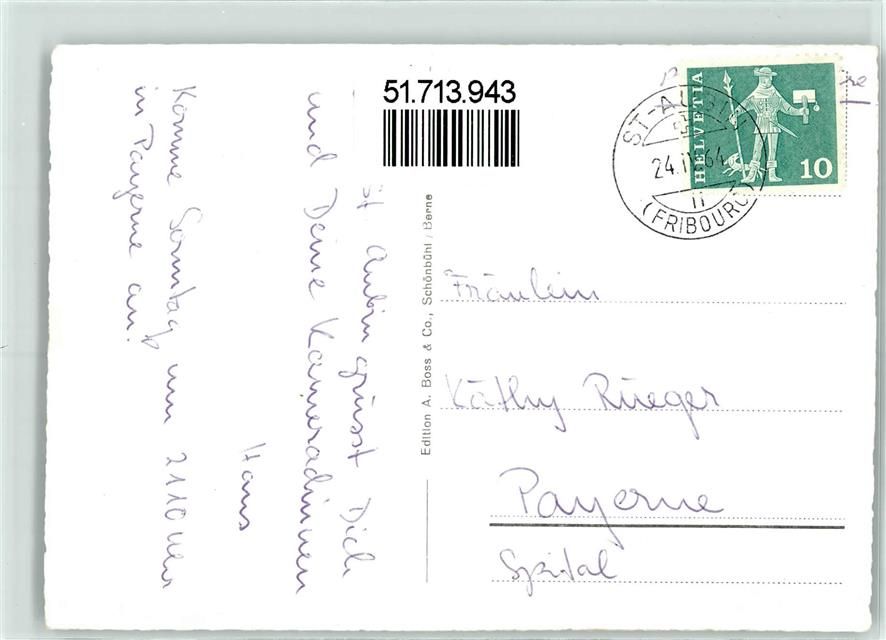 51.713.943
HELVETIA
10
ST-AUBIN
24.IV.64
(FRIBOURG)
St Aubin grüsst Dich
und Deine Kameradinnen
Hans
Komme Sonntag um 2110 Uhr
in Payerne an!
Edition A. Boss & Co., Schönbühl / Berne
Fräulein
Käthy Rüeger
Payerne
Spital